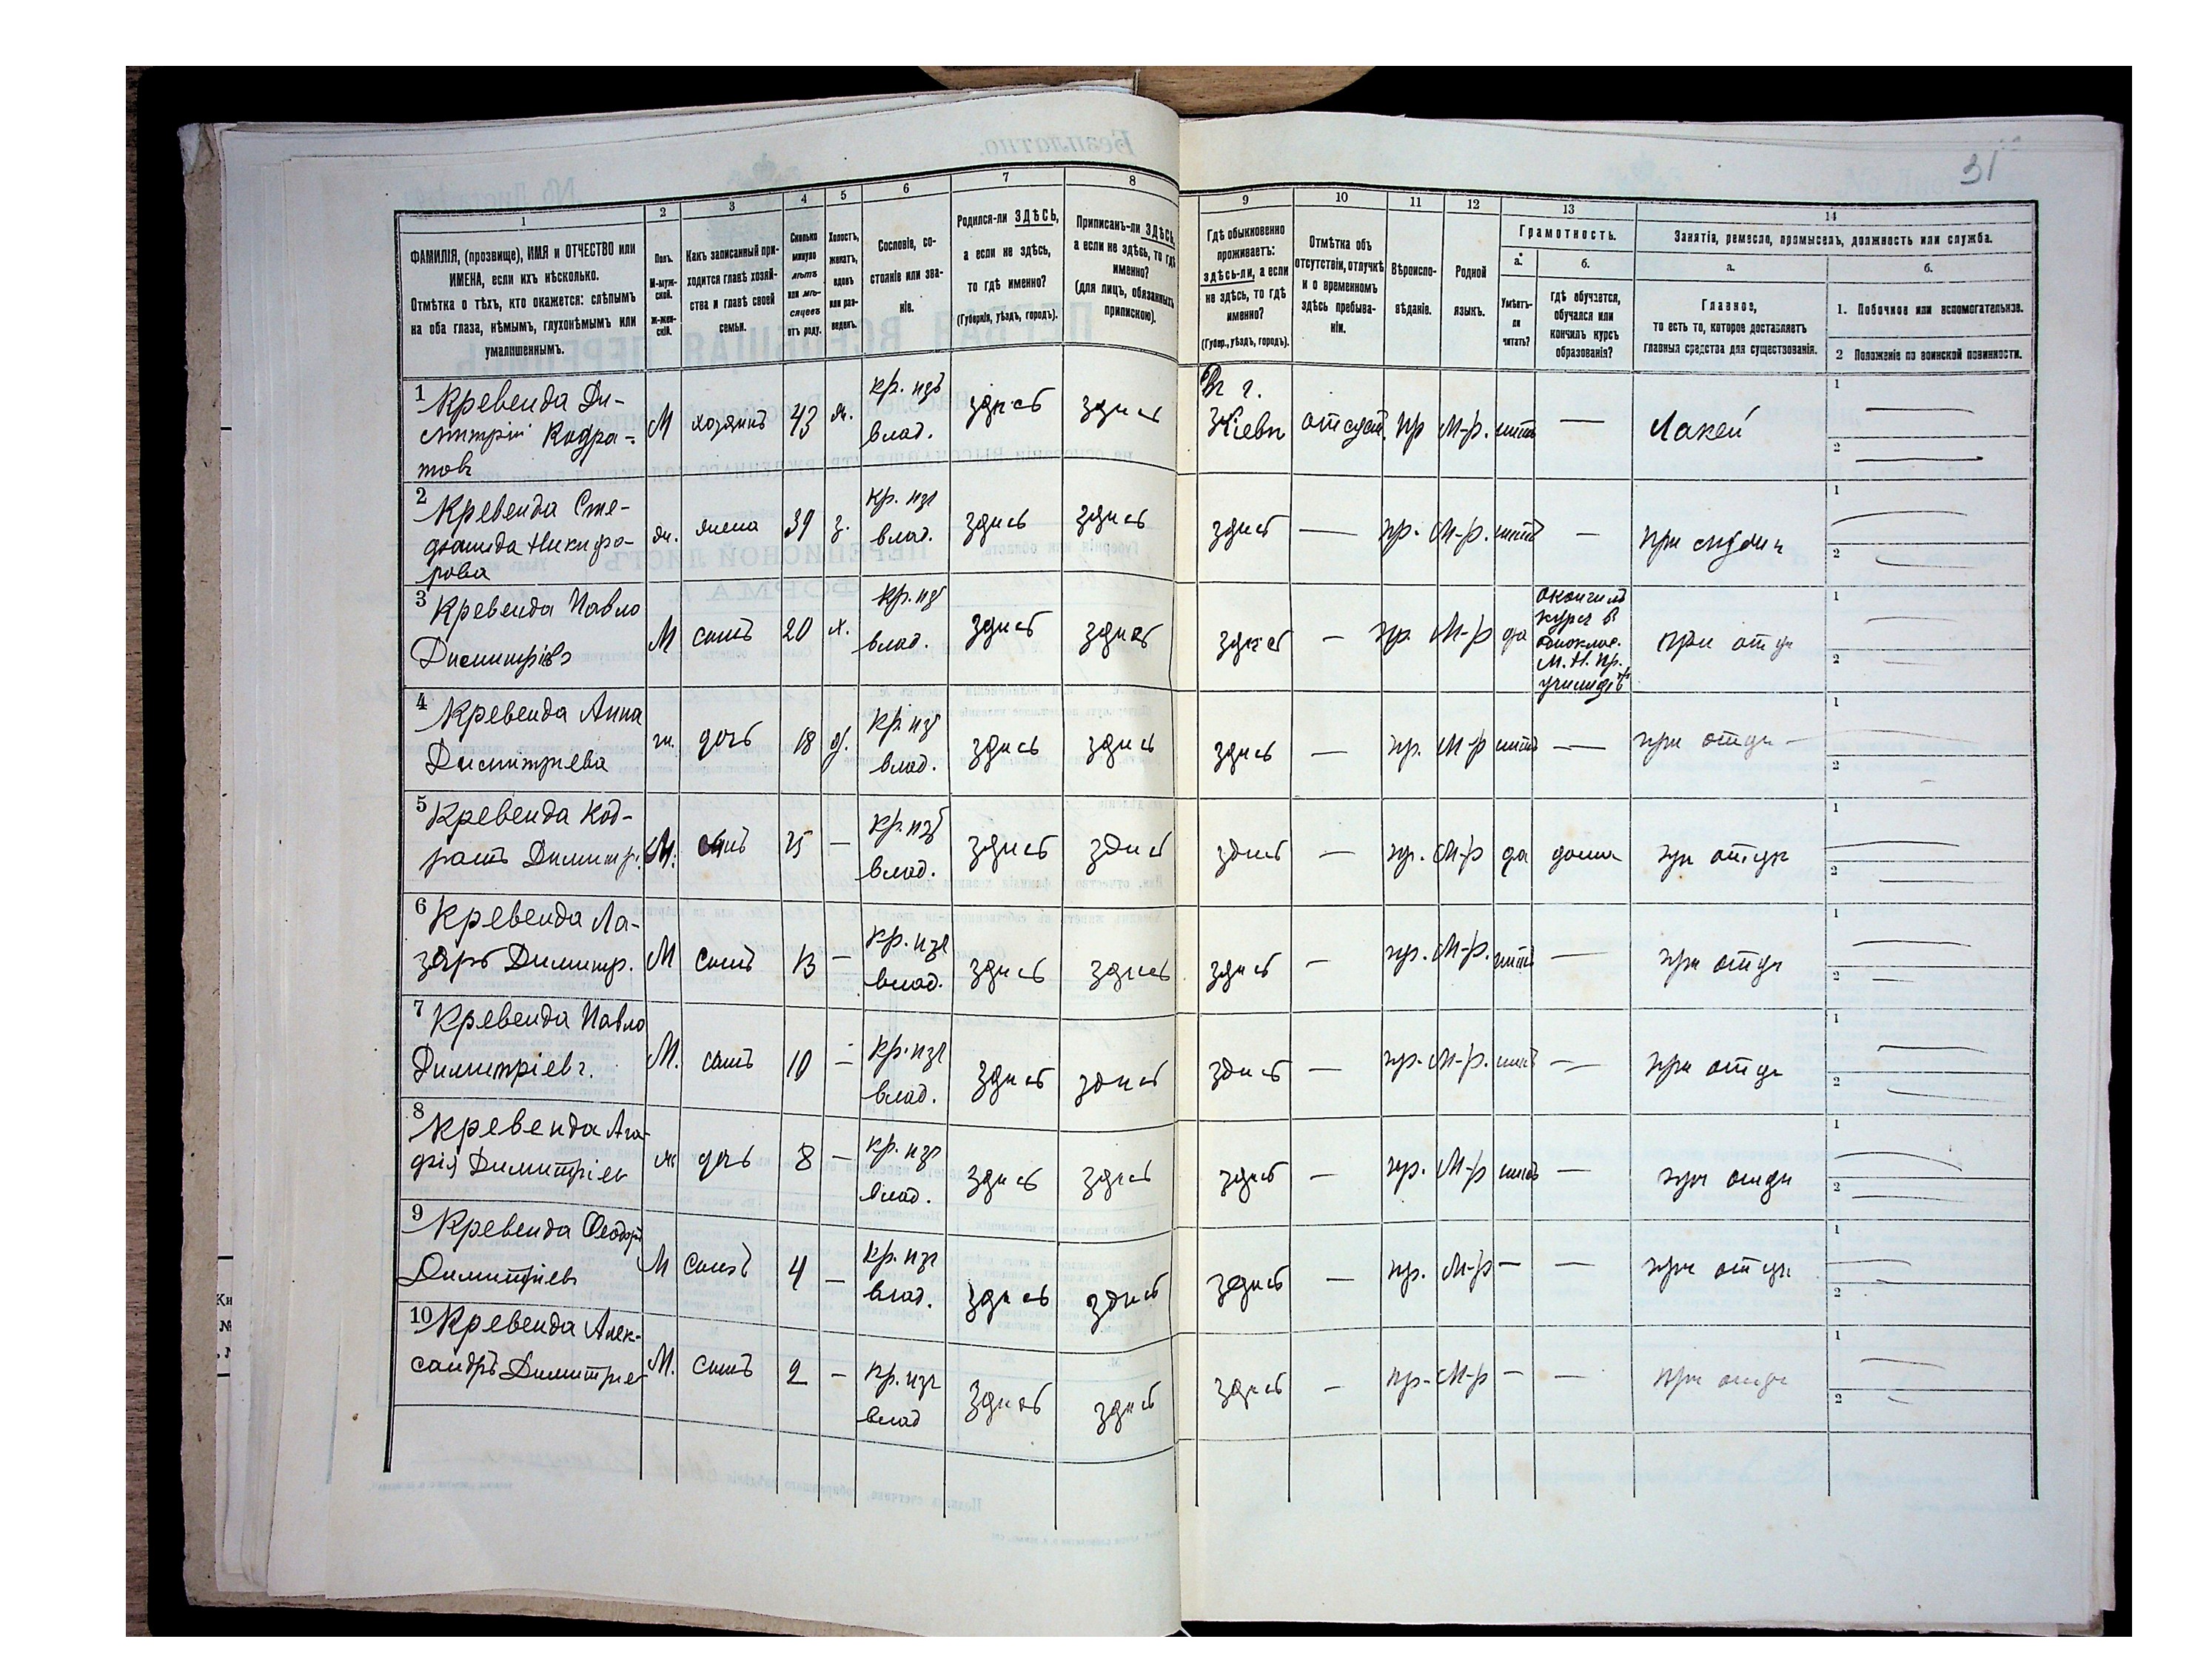 31
1
ФАМИЛІЯ, (прозвище), ИМЯ и ОТЧЕСТВО или
ИМЕНА, если ихъ нѣсколько.
Отмѣтка о тѣхъ, кто окажется: слѣпымъ
на оба глаза, нѣмымъ, глухонѣмымъ или
умалишеннымъ.
2
Полъ.
М-муж-
ской.
Ж-жен-
скій.
3
Какъ записанный при-
ходится главѣ хозяй-
ства и главѣ своей
семьи.
4
Сколько
минуло
лѣтъ
или мѣ-
сяцевъ
отъ роду.
5
Холостъ,
женатъ,
вдовъ
или раз-
веденъ.
6
Сословіе, со-
стояніе или зва-
ніе.
7
Родился-ли ЗДѢСЬ,
а если не здѣсь,
то гдѣ именно?
(Губернія, уѣздъ, городъ).
8
Приписанъ-ли ЗДѢСЬ,
а если не здѣсь, то гдѣ
именно?
(для лицъ, обязанныхъ
припискою).
9
Гдѣ обыкновенно
проживаетъ:
здѣсь-ли, а если
не здѣсь, то гдѣ
именно?
(Губер., уѣздъ, городъ).
10
Отмѣтка объ
отсутствіи, отлучкѣ
и о временномъ
здѣсь пребыва-
ніи.
11
Вѣроиспо-
вѣданіе.
12
Родной
языкъ.
13
Грамотность.
а.
Умѣетъ-
ли
читать?
б.
гдѣ обучается,
обучался или
кончилъ курсъ
образованія?
14
Занятіе, ремесло, промыселъ, должность или служба.
а.
Главное,
то есть то, которое доставляетъ
главныя средства для существованія.
б.
1. Побочное или вспомогательное.
2 Положеніе по воинской повинности.
1 Кревенда Ди-
митрій Кодра-
товъ
М хозяинъ 43 ж. кр. изъ
влад. здѣсь здѣсь
Въ г.
Кіевѣ отсут. пр М-р. нѣтъ — Лакей
1 —
2 —
2 Кревенда Сте-
фанида Никифо-
рова
ж. жена 39 з. кр. изъ
влад. здѣсь здѣсь
здѣсь — пр. М-р. нѣтъ — при мужѣ
1 —
2 —
3 Кревенда Павло
Димитріевъ
М сынъ 20 х. кр. изъ
влад. здѣсь здѣсь
здѣсь — пр. М-р да
окончилъ
курсъ въ
одноклас.
М. Н. Пр.
училищѣ
при отцѣ
1 —
2 —
4 Кревенда Анна
Димитріева
ж. дочь 18 д. кр. изъ
влад. здѣсь здѣсь
здѣсь — пр. М-р нѣтъ — при отцѣ
1 —
2 —
5 Кревенда Код-
ратъ Димитр.
М. сынъ 15 — кр. изъ
влад. здѣсь здѣсь
здѣсь — пр. М-р да дома при отцѣ
1 —
2 —
6 Кревенда Ла-
зарь Димитр.
М сынъ 13 — кр. изъ
влад. здѣсь здѣсь
здѣсь — пр. М-р. нѣтъ — при отцѣ
1 —
2 —
7 Кревенда Павло
Димитріевъ.
М. сынъ 10 — кр. изъ
влад. здѣсь здѣсь
здѣсь — пр. М-р. нѣтъ — при отцѣ
1 —
2 —
8 Кревенда Ага-
фія Димитріев
ж дочь 8 — кр. изъ
влад. здѣсь здѣсь
здѣсь — пр. М-р нѣтъ — при отцѣ
1 —
2 —
9 Кревенда Ѳеодоръ
Димитріевъ
М сынъ 4 — кр. изъ
влад. здѣсь здѣсь
здѣсь — пр. М-р — — при отцѣ
1 —
2 —
10 Кревенда Алек-
сандръ Димитріев
М. сынъ 2 — кр. изъ
влад здѣсь здѣсь
здѣсь — пр. М-р — — при отцѣ
1 —
2 —